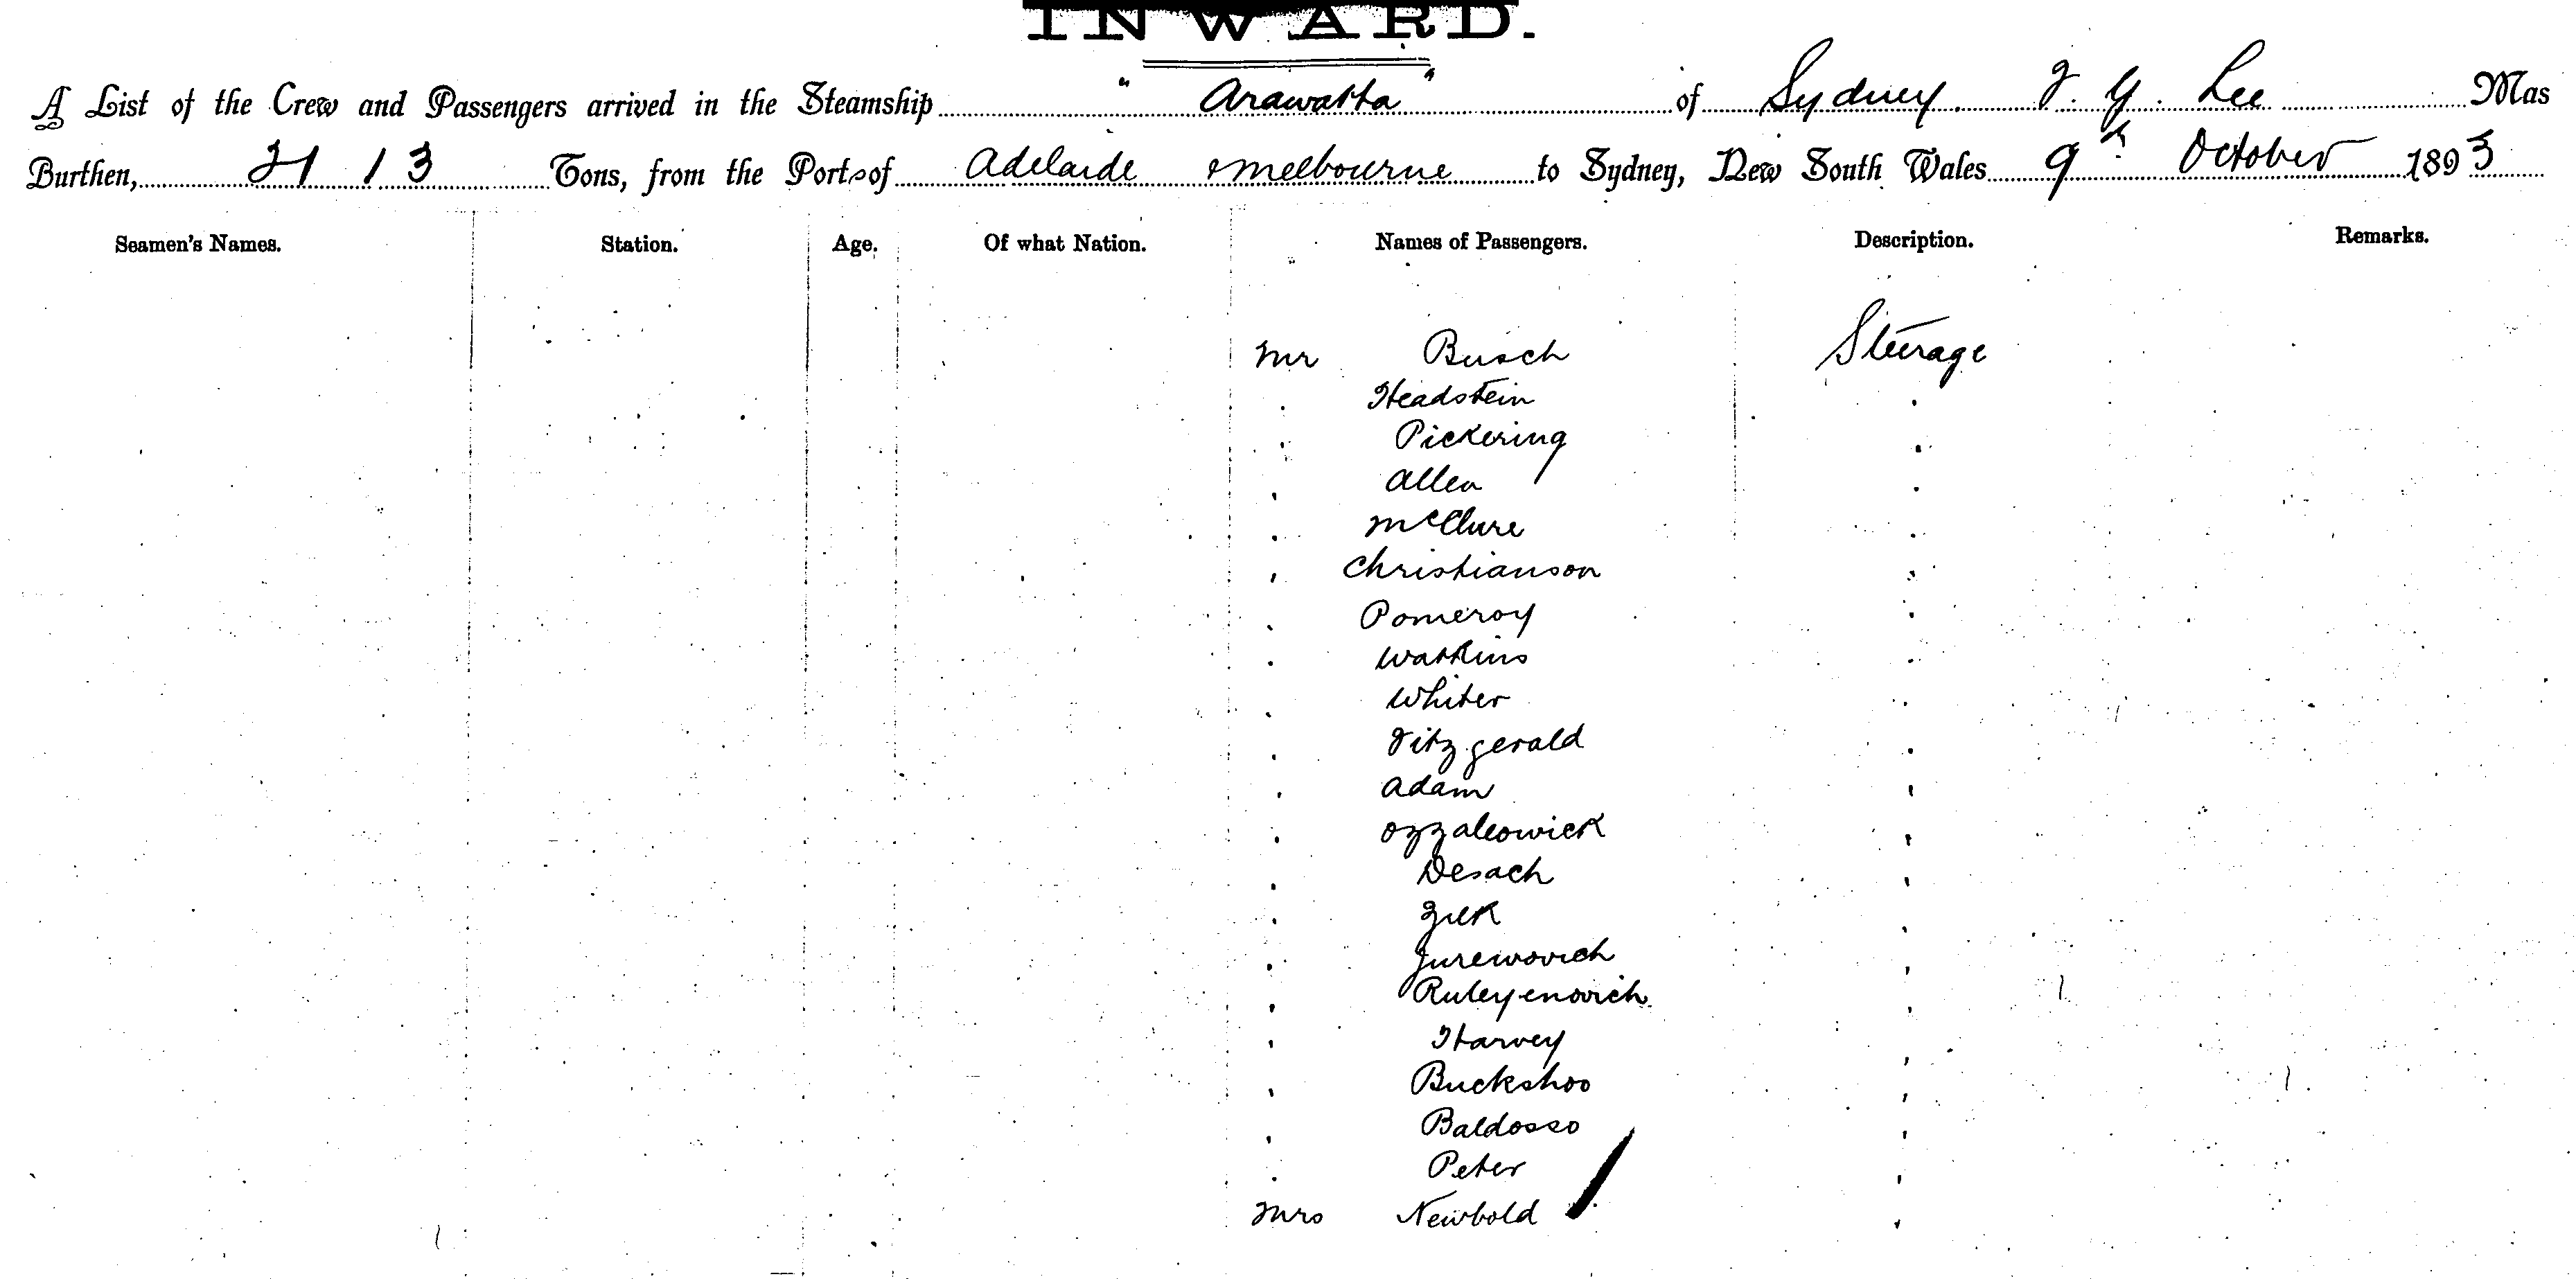 INWARD.
A List of the Crew and Passengers arrived in the Steamship "Arawatta" of Sydney. F. G. Lee Mas
Burthen, 2113 Tons, from the Ports of Adelaide & Melbourne to Sydney, New South Wales 9th October 1893
Seamen's Names. Station. Age. Of what Nation. Names of Passengers. Description. Remarks.
Mr Busch Steerage
Headstein
Pickering
Allen
McClure
Christianson
Pomeroy
Watkins
Whiter
Fitzgerald
Adam
Ozzaleowick
Desach
Zilk
Jurewovich
Ruleyenovich
Harvey
Buckshoo
Baldosso
Peter
Mrs Newbold